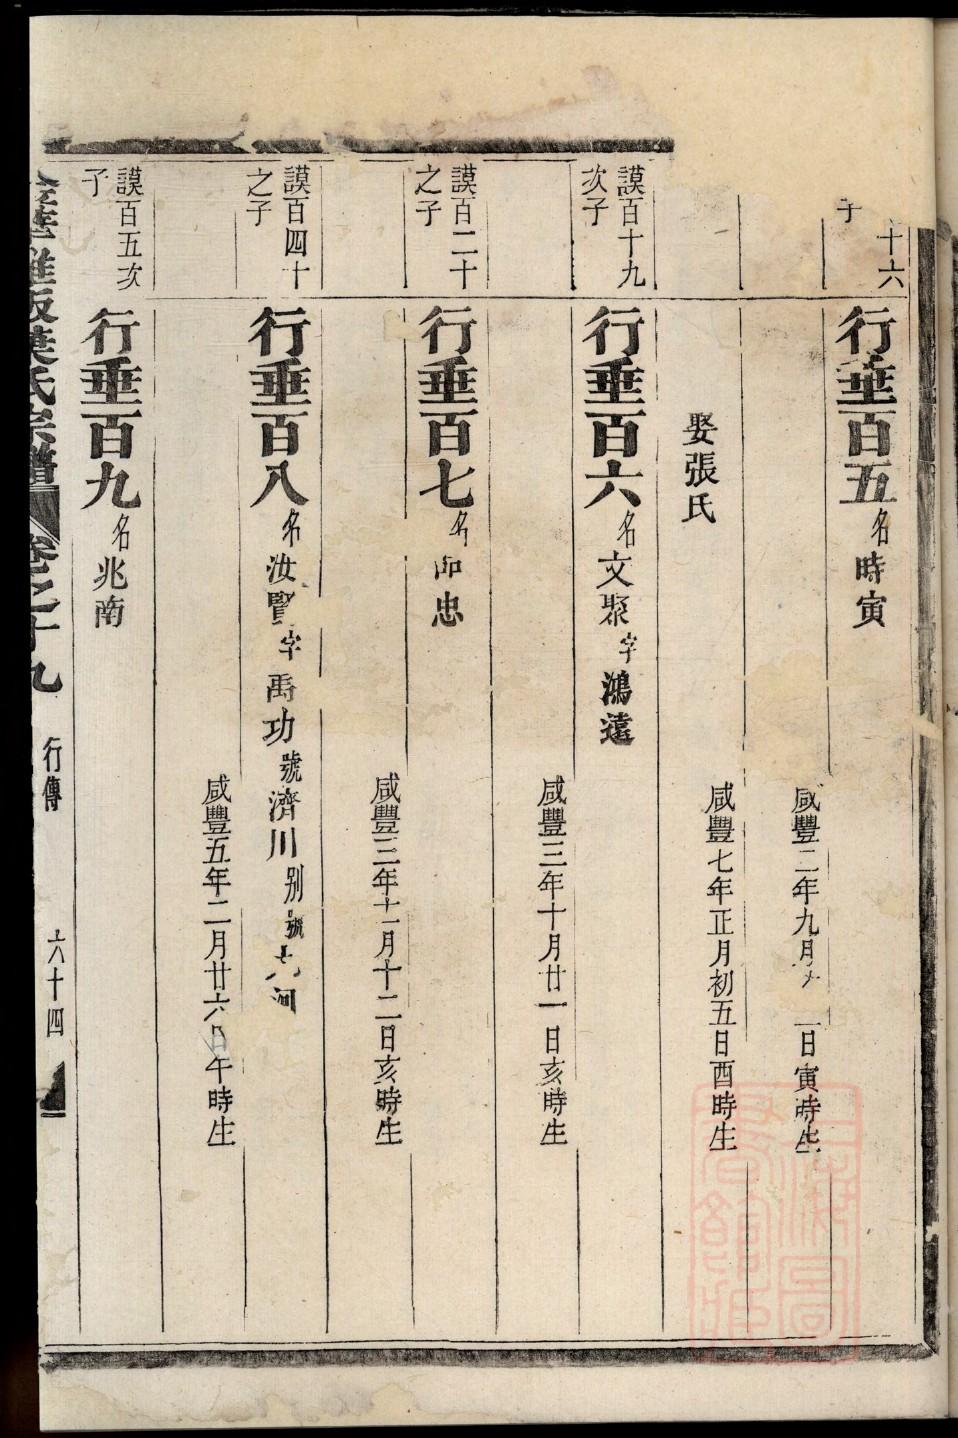 十六
子
行垂百五名時寅
咸豐二年九月
一日寅時生
娶張氏
咸豐七年正月初五日酉時生
謨百十九
次子
行垂百六名文聚字鴻遠
咸豐三年十月廿一日亥時生
謨百二十
之子
行垂百七名 忠
咸豐三年十一月十二日亥時生
謨百四十
之子
行垂百八名汝賢字禹功號濟川别號
咸豐五年二月廿六日午時生
謨百五次
子
行垂百九名兆南
氏宗譜 卷之十九 行傳 六十四